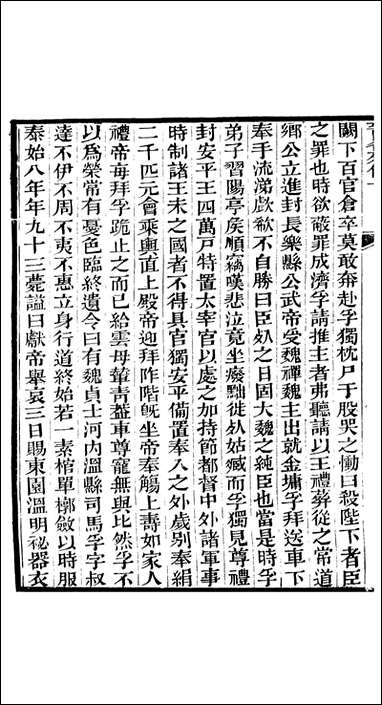 闕下百官倉卒莫敢奔赴孚獨枕尸于股哭之慟曰殺陛下者臣
之罪也時欲蔽罪成濟孚請推主者弗聽請以王禮葬從之常道
鄉公立進封長樂縣公武帝受魏禪魏主出就金墉孚拜送車下
奉手流涕歔欷不自勝曰臣死之日固大魏之純臣也當是時孚
弟子習陽亭矦順竊嘆悲泣竟坐廢黜徙死姑臧而孚獨見尊禮
封安平王四萬戸特置太宰官以處之加持節都督中外諸軍事
時制諸王未之國者不得具官獨安平備置奉入之外歲別奉絹
二千匹元會乘輿直上殿帝迎拜阼階旣坐帝奉觴上壽如家人
禮帝每拜孚跪止之而已給雲母輦青葢車尊寵無與比然孚不
以爲榮常有憂色臨終遺令曰有魏貞士河內溫縣司馬孚字叔
達不伊不周不夷不惠立身行道終始若一素棺單槨斂以時服
泰始八年年九十三薨諡曰獻帝舉哀三日賜東園溫明祕器衣